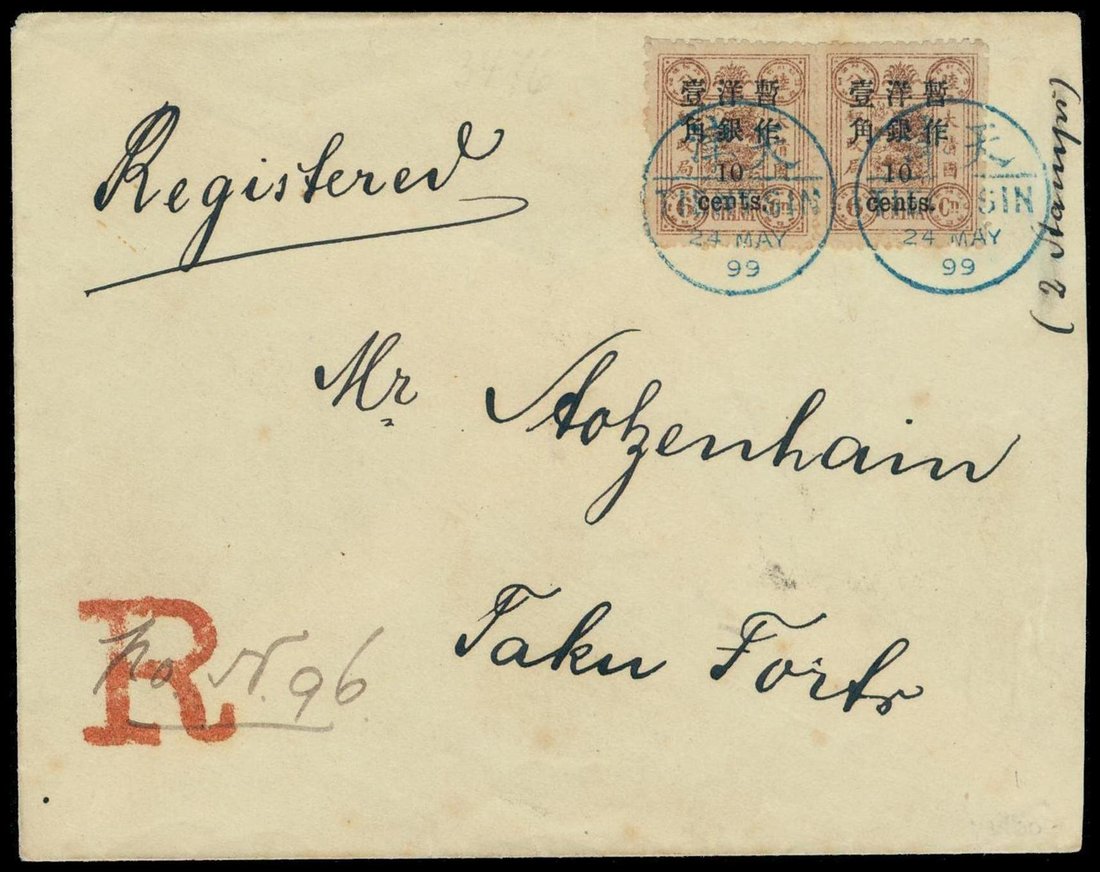 Registered
暫作洋銀壹角
10
cents.
暫作洋銀壹角
10
cents.
天津
TIENTSIN
24 MAY
99
天津
TIENTSIN
24 MAY
99
(stamps 2)
Mr Stotzenhain
Taku Forts
R
No N. 96.